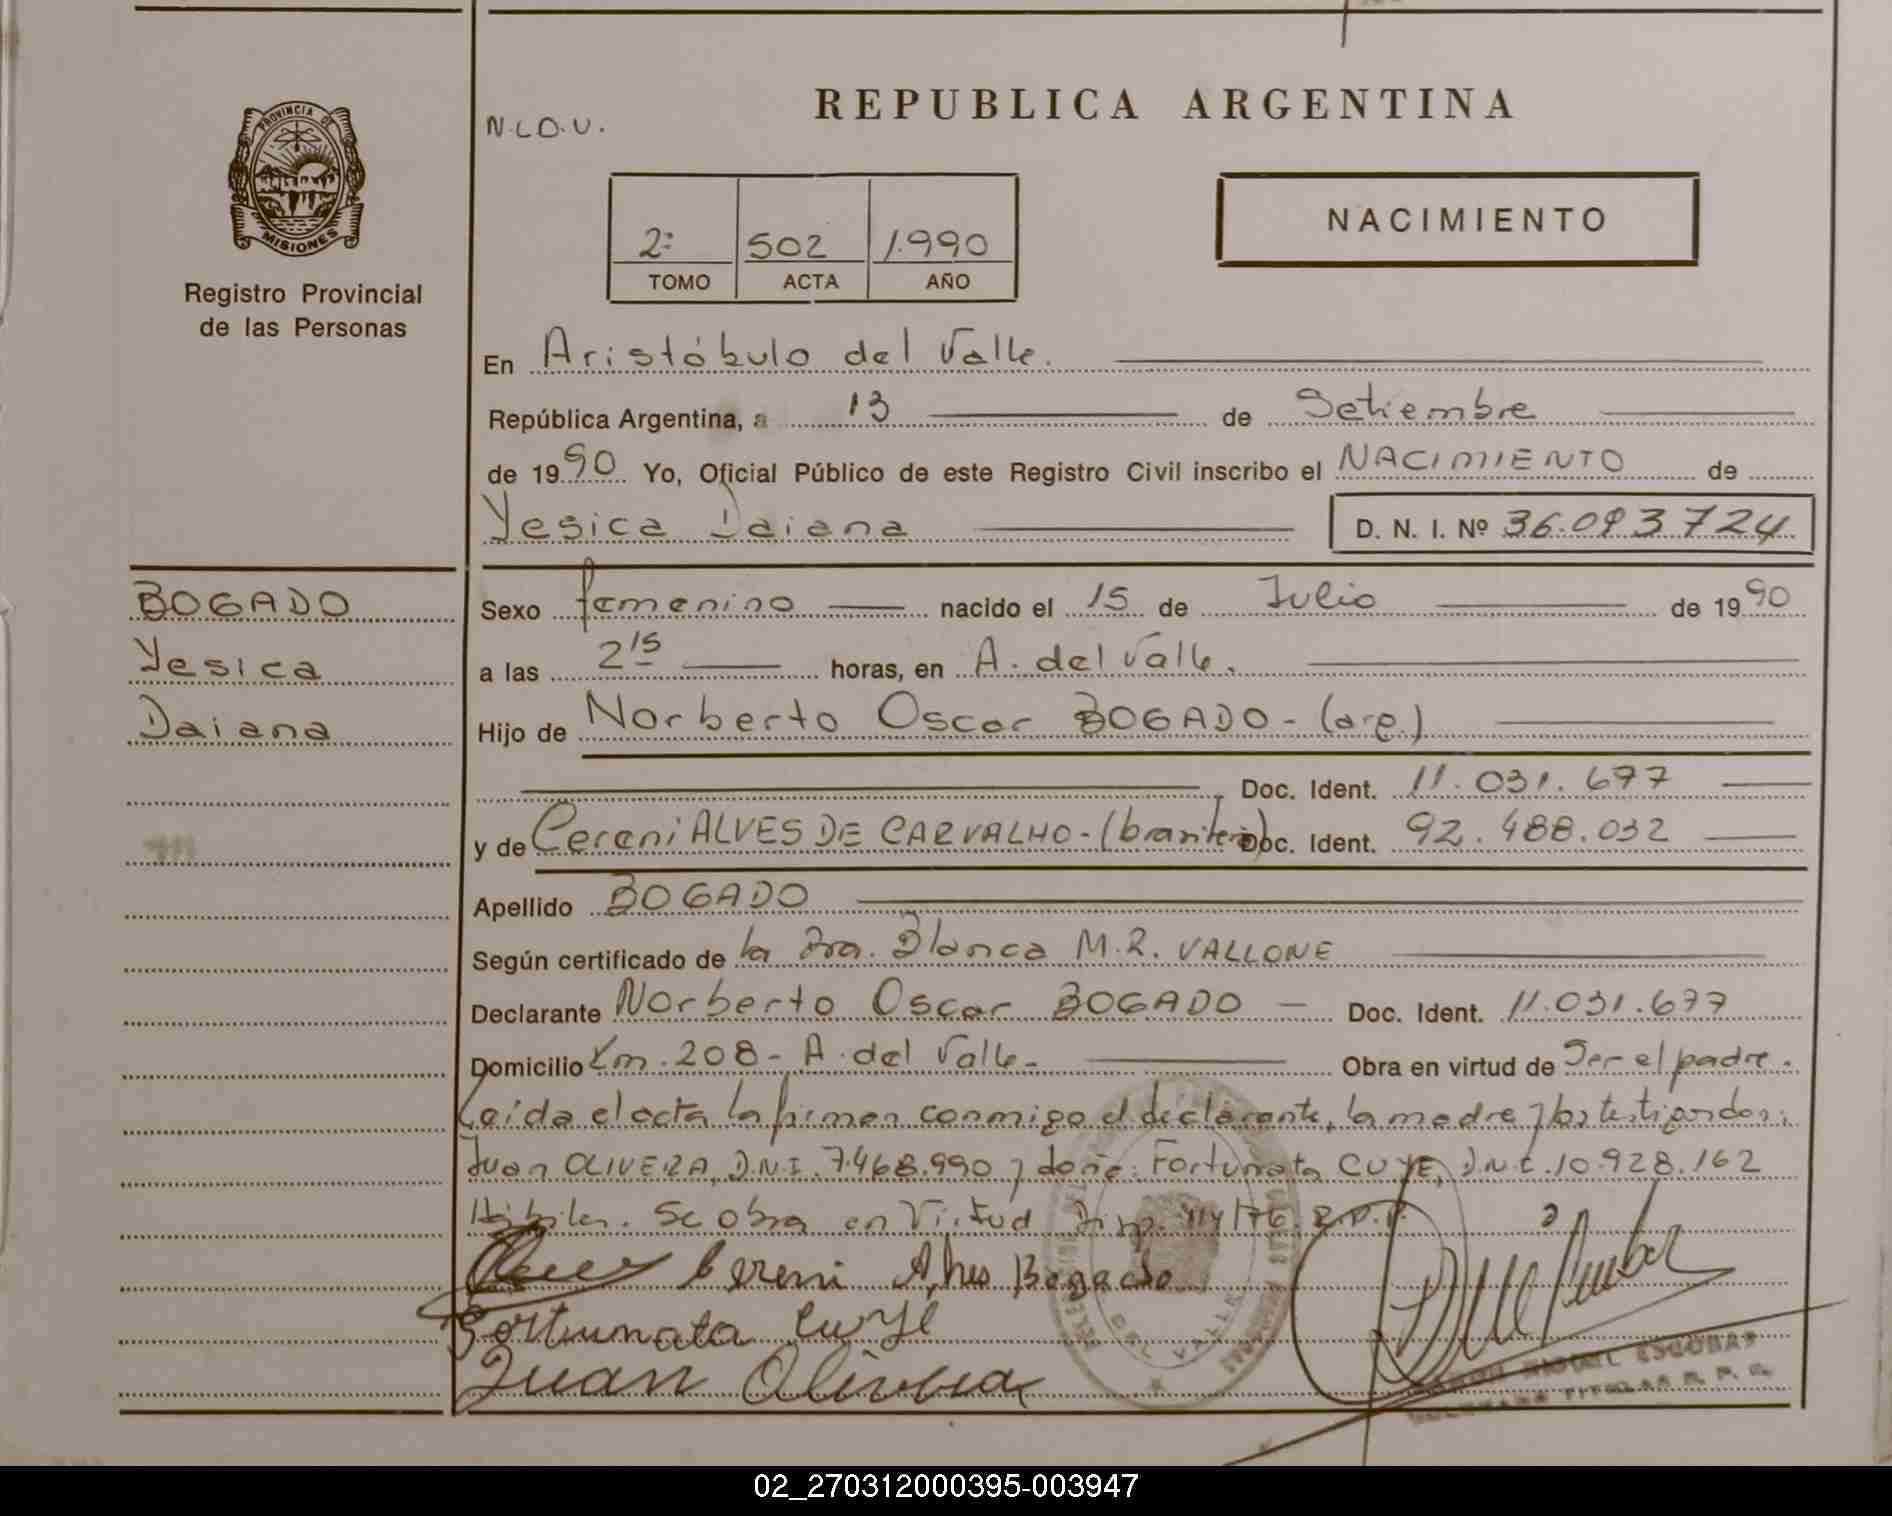 PROVINCIA DE
MISIONES
Registro Provincial
de las Personas
N.L.D.U.
REPUBLICA ARGENTINA
2º 502 1.990
TOMO ACTA AÑO
NACIMIENTO
En Aristóbulo del Valle.
República Argentina, a 13 de Setiembre
de 1990 Yo, Oficial Público de este Registro Civil inscribo el NACIMIENTO de
Yesica Daiana D. N. I. Nº 36.093.724
BOGADO
Yesica
Daiana
Sexo femenino nacido el 15 de Julio de 1990
a las 2 15 horas, en A. del Valle.
Hijo de Norberto Oscar BOGADO - (arg.)
Doc. Ident. 11.031.677
y de Cereni ALVES DE CARVALHO - (brasilera) Doc. Ident. 92.488.032
Apellido BOGADO
Según certificado de la Dra. Blanca M.R. VALLONE
Declarante Norberto Oscar BOGADO - Doc. Ident. 11.031.677
Domicilio Km. 208 - A. del Valle - Obra en virtud de Ser el padre.
Leída el acta la firman conmigo el declarante, la madre y los testigos don:
Juan OLIVERA, D.N.I. 7.468.990 y doña: Fortunata CUYE, D.N.I. 10.928.162
Hábiles. Se obra en Virtud Disp.
Cereni Alves Bogado
Fortunata Cuye
Juan Olivera
DEL VALLE
MIGUEL ESCOBAR
TITULAR R. P.
02_270312000395-003947